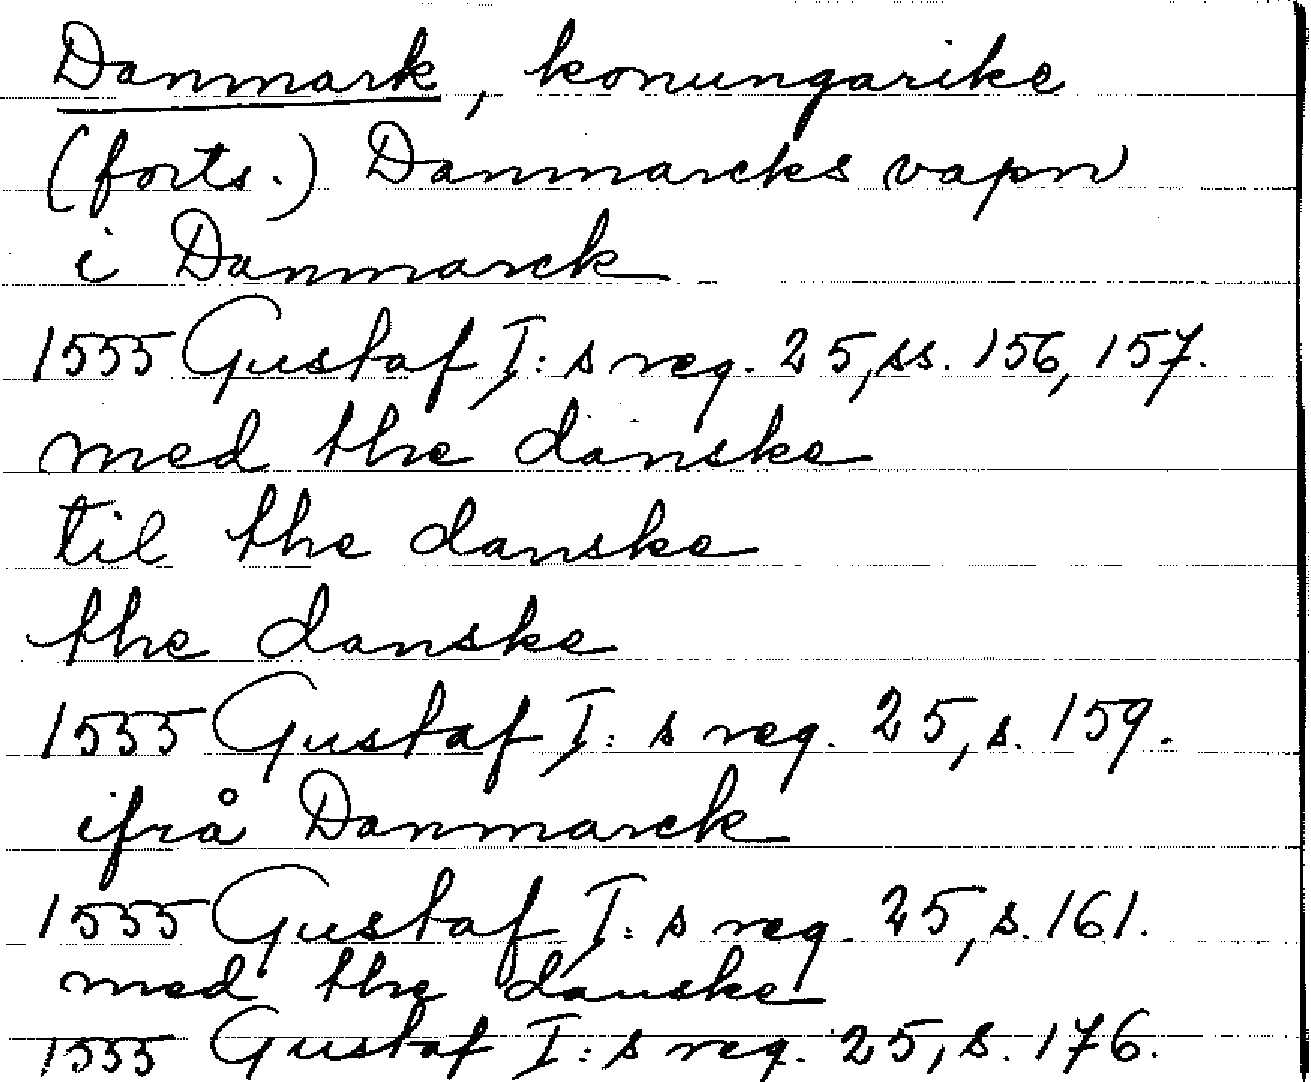 Danmark, konungarike
(forts.) Danmarcks vapn
i Danmarck
1555 Gustaf I:s reg. 25, ss. 156, 157.
med the danske
til the danske
the danske
1555 Gustaf I:s reg. 25, s. 159.
ifrå Danmarck
1555 Gustaf I:s reg. 25, s. 161.
med the danske
1555 Gustaf I:s reg. 25, s. 176.